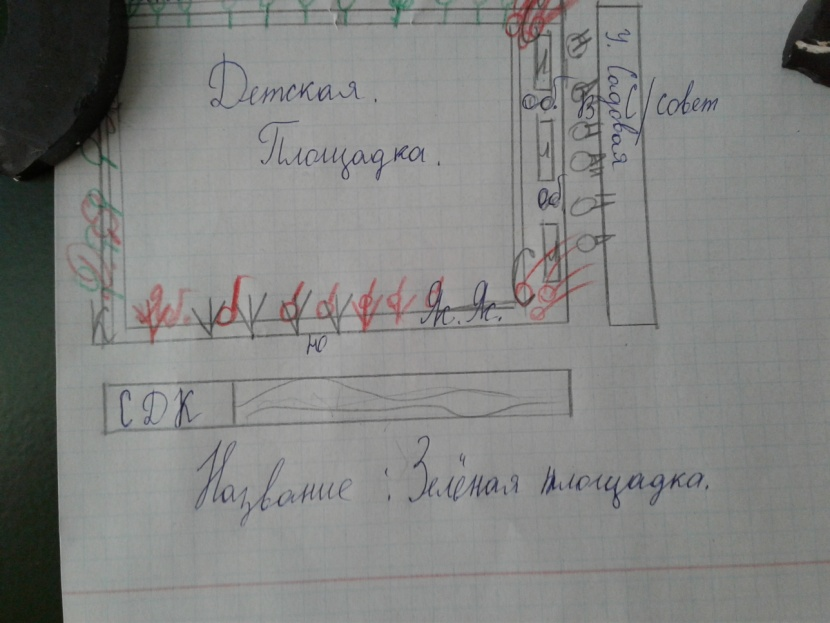 Детская.
Площадка.
У. Садовая
С/совет
Як. Як.
Ю
К
СДК
Название : Зелёная площадка.